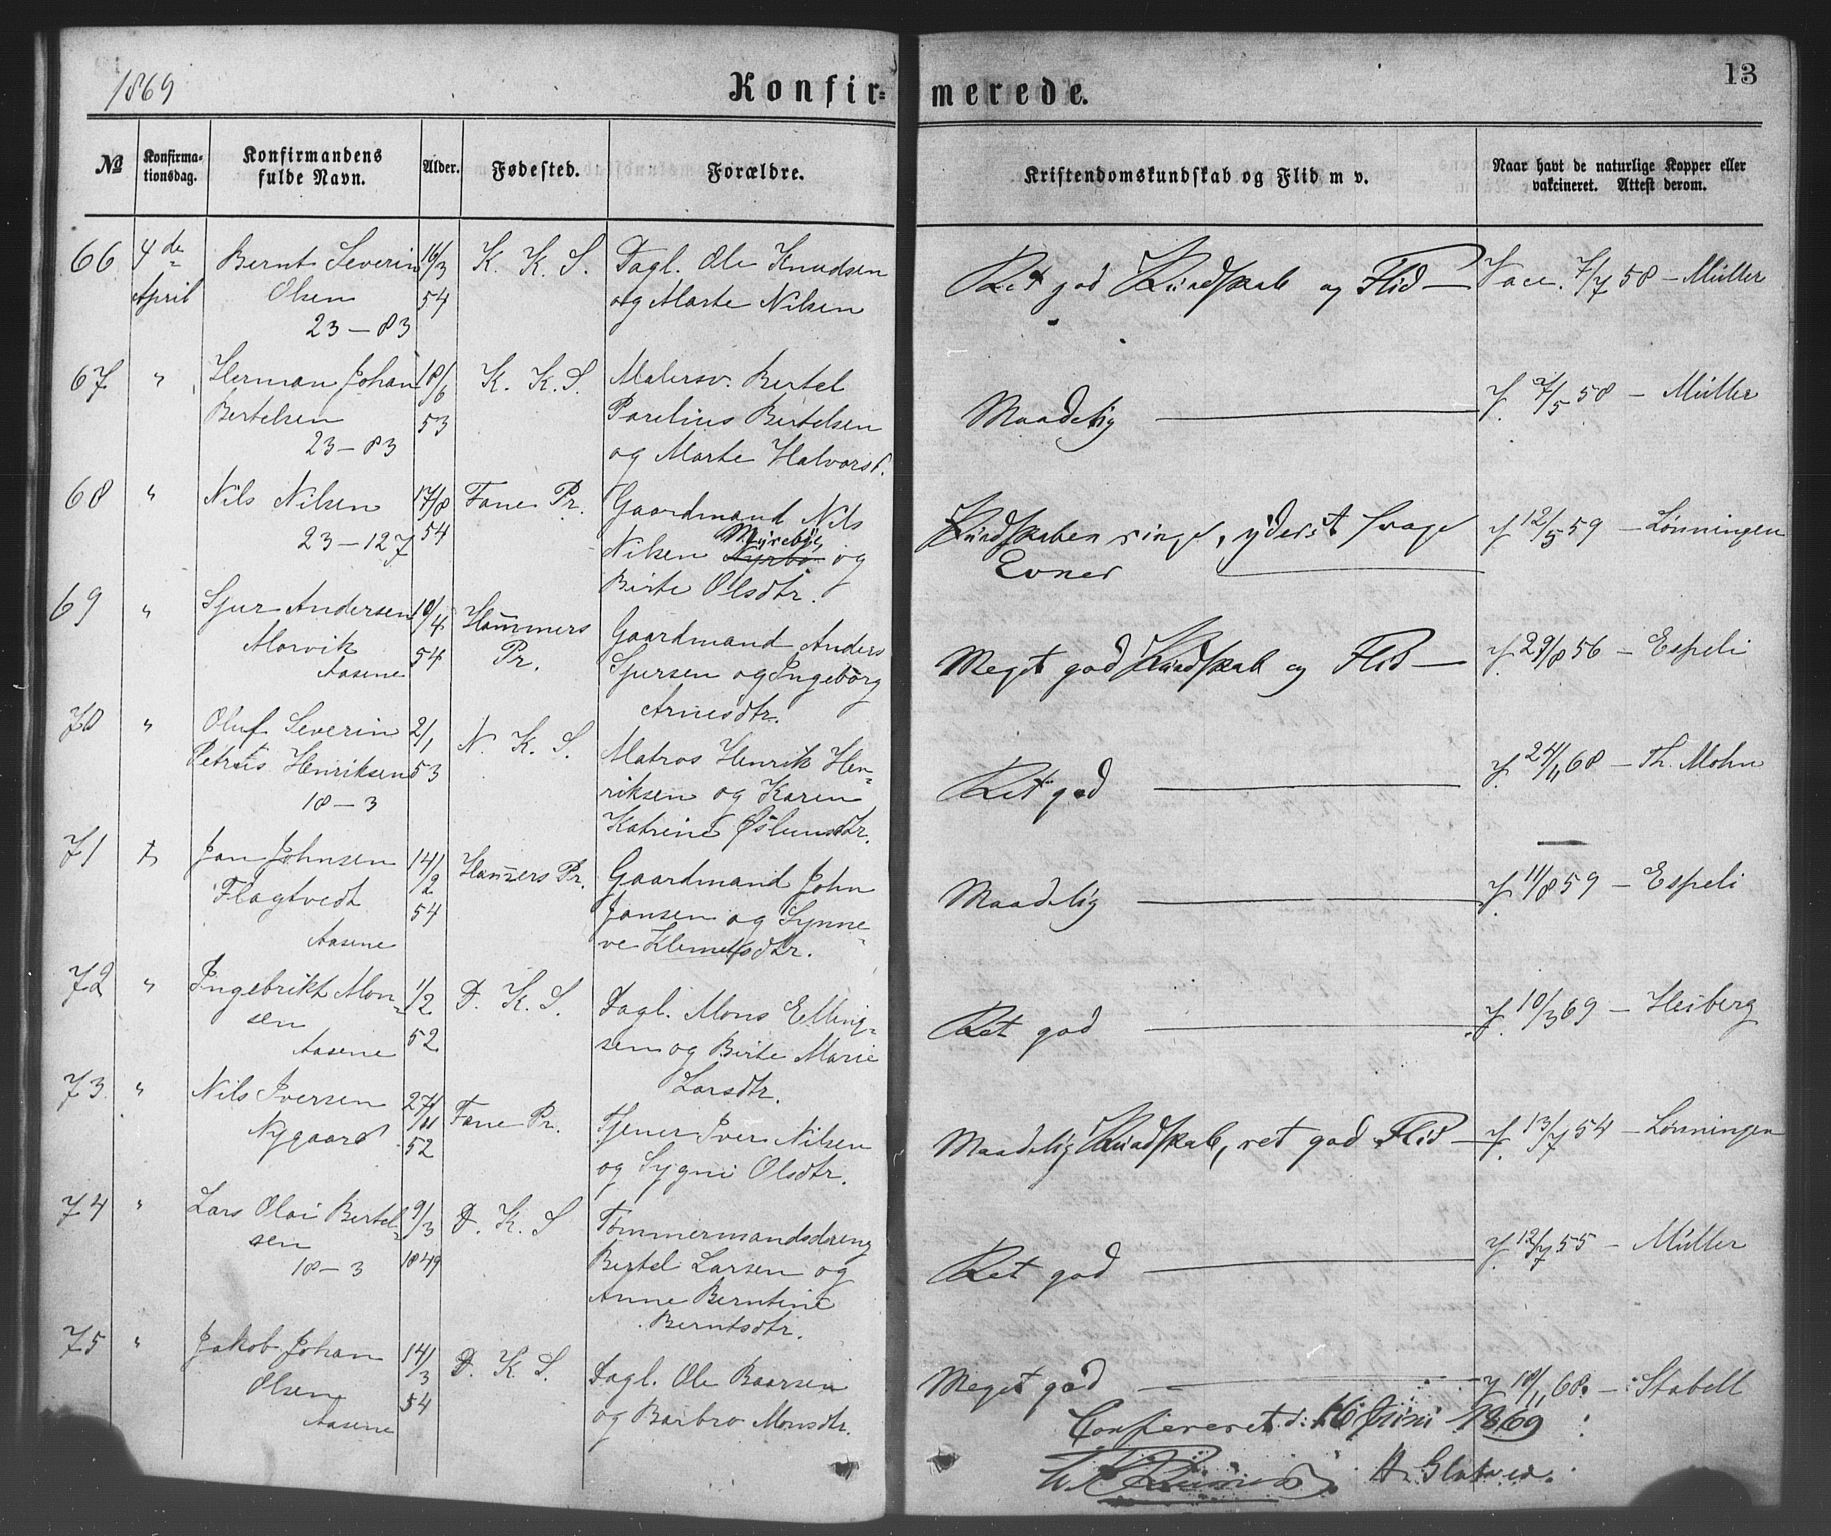 1869
Konfirmerede.
13
№ Konfirmationsdag. Konfirmandens fulde Navn. Alder. Fødested. Forældre. Kristendomskundskab og Flid m v. Naar havt de naturlige Kopper eller vakcineret. Attest derom.
66 4de Bernt Severin 16/3 K. K. S. Dagl. Ole Knudsen
April Olsen 54 og Marte Nilsen
23-83
Ret god Kundskab og Flid — Vacc. 7/7 58 - Müller
67 " Herman Johan 18/6 K. K. S. Malersv. Bertel
Bertelsen 53 Parelius Bertelsen
23-83 og Marte Halvorsd.
Maadelig — /5 58 - Müller
68 " Nils Nilsen 17/8 Fane Pr. Gaardmand Nils
23-127 54 Nilsen Myrebø og
Birte Olsdtr.
Kundskaben ringe, yderst svage 12/5 59 - Lønningen
Evner —
69 " Sjur Andersen 10/4 Hammers Gaardmand Anders
Morvik 54 Pr. Sjursen og Ingeborg
Aasene Arnesdtr.
Meget god Kundskab og Flid — 29/8 56 - Espeli
70 " Oluf Severin 2/1 N. K. S. Matros Henrik Hen-
Petrus Henriksen 53 riksen og Karen
18-3 Katrine
Ret god — 24/11 68 - Th. Mohn
71 Jan Johnsen 14/2 Hamers Pr. Gaardmand John
Flagtvedt 54 Jansen og Synne-
Aasene ve Klemetsdtr.
Maadelig — 11/8 59 - Espeli
72 " Ingebrikt Mon- 1/2 D. K. S. Dagl. Mons Elling-
sen 52 sen og Birte Marie
Aasene Larsdtr.
Ret god — 10/3 69 - Heiberg
73 " Nils Iversen 27/11 Fane Pr. Tjener Iver Nilsen
Nygaard 52 og Sygni Olsdtr.
Maadelig Kundskab, ret god Flid — 13/7 54 - Lønningen
74 " Lars Olai Bertel- 9/3 D. K. S Tømmermandsdreng
sen 1849 Bertel Larsen og
18-3 Anne Berntine
Berntsdtr.
Ret god — 12/7 55 - Müller
75 " Jakob Johan 14/3 D. K. S. Dagl. Ole Baarsen
Olsen 54 og Barbro Monsdtr.
Aasene
Meget god — 18/11 68. - Stabell
Confereret d: 16 Juni 1869